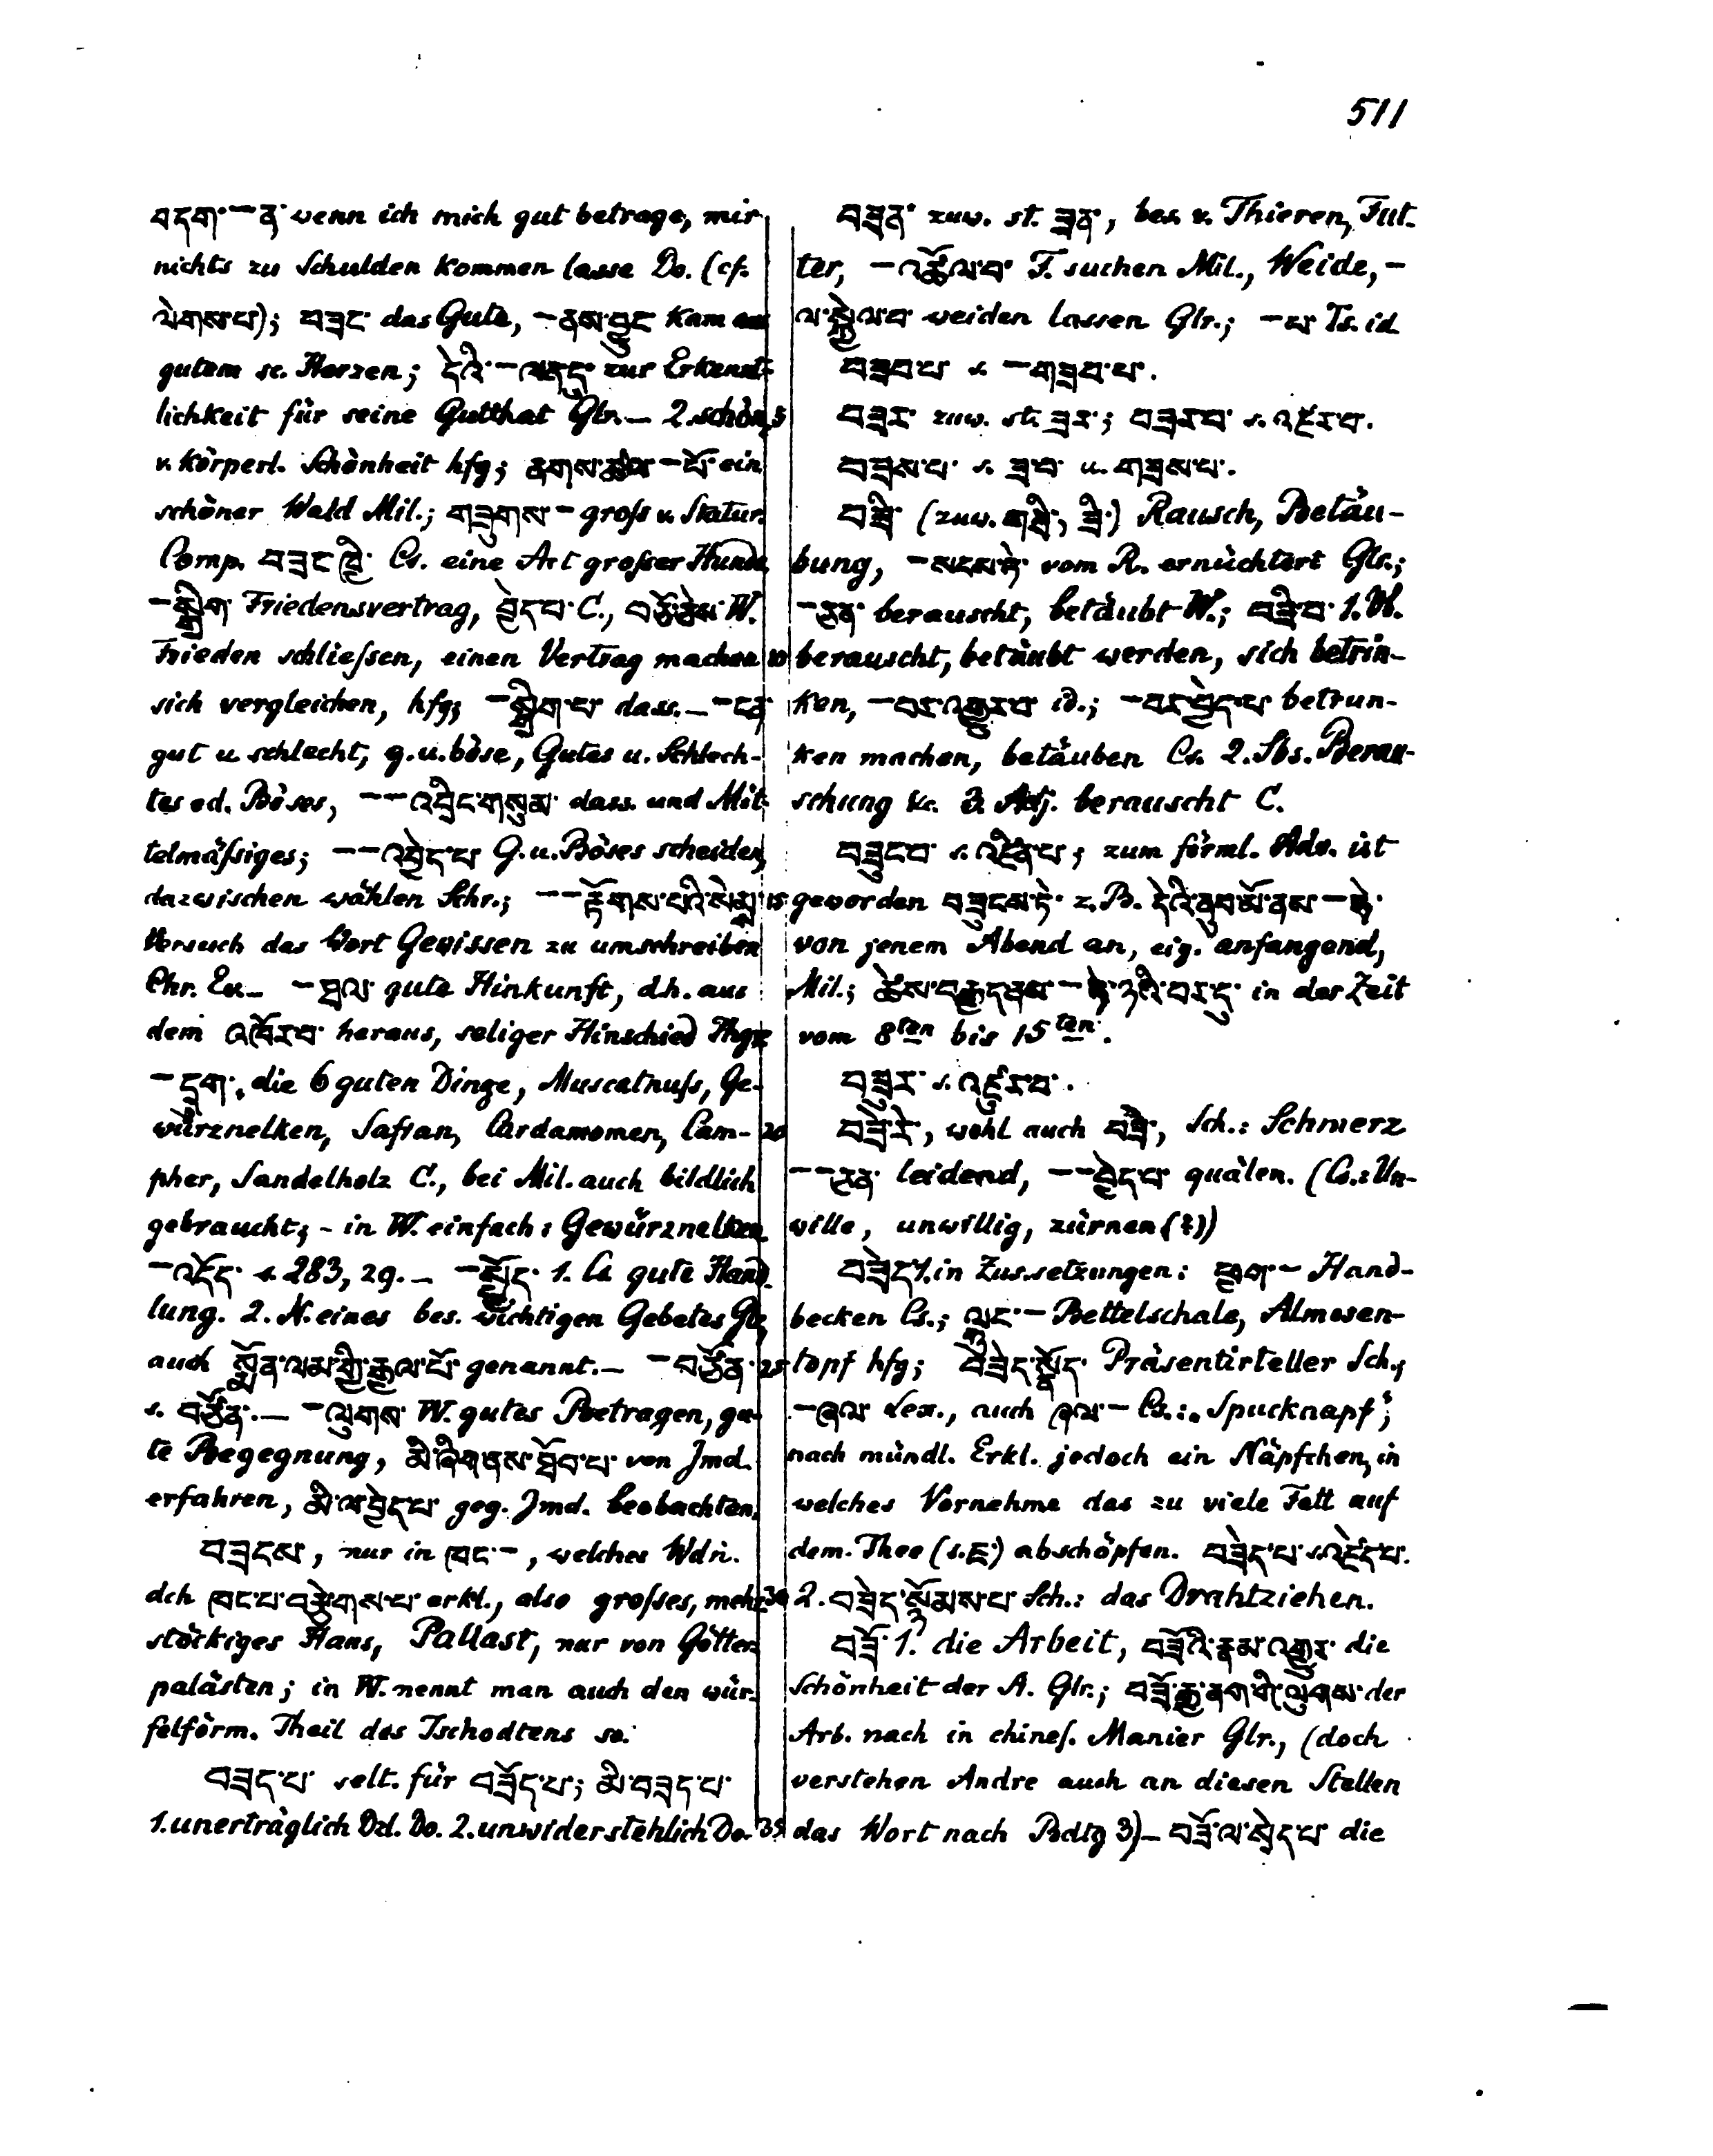 511
བདག་ – ན་ wenn ich mich gut betrage, mir
nichts zu Schulden kommen lasse Do. (cf.
ལེགས་པ་); བཟང་ das Gute, – ནས་བྱུང་ kam aus
gutem sc. Herzen; དེའི་ – ལན་དུ་ zur Erkennt-
lichkeit für seine Gutthat Glr. – 2. schön, 5
v. körperl. Schönheit hfg; ནགས་ – པོ་ ein
schöner Wald Mil.; གཟུགས་ – groſs v. Statur.
Comp. བཟང་ཁྱི་ Cs. eine Art groſser Hunde,
– སྒྲིག་ Friedensvertrag, བྱེད་པ་ C., W.
Frieden schlieſsen, einen Vertrag machen 10
sich vergleichen, hfg; – སྒྲིག་པ་ dass. – – ངན་
gut u. schlecht, g. u. böse, Gutes u. Schlech-
tes od. Böses, – – འབྲིང་གསུམ་ dass. und Mit-
telmäſsiges; – – འབྱེད་པ་ G. u. Böses scheiden,
dazwischen wählen Schr.; – – རྟོགས་པའི་སེམས་ 15
Versuch das Wort Gewissen zu umschreiben
Chr. Ex. – – ཐལ་ gute Hinkunft, d.h. aus
dem འཁོར་བ་ heraus, seliger Hinschied Thgr.
– དྲུག་, die 6 guten Dinge, Muscatnuſs, Ge-
würznelken, Safran, Cardamomen, Cam- 20
pher, Sandelholz C., bei Mil. auch bildlich
gebraucht; – in W. einfach: Gewürznelken.
– འདོད་ s. 283, 29. – – སྤྱོད་ 1. Cs. gute Hand-
lung. 2. N. eines bes. wichtigen Gebetes Glr.,
auch སྨོན་ལམ་གྱི་རྒྱལ་པོ་ genannt. – – བརྩོན་ 25
s. བརྩོན་. – – ལུགས་ W. gutes Betragen, gu-
te Begegnung, མི་ཞིག་ནས་ཐོབ་པ་ von Jmd.
erfahren, མི་ལ་བྱེད་པ་ geg. Jmd. beobachten.
བཟངས་, nur in ཁང་ –, welches Wdn.
dch ཁང་པ་བརྩེགས་པ་ erkl., also groſses, mehr- 30
stöckiges Haus, Pallast, nur von Götter-
palästen; in W. nennt man auch den wür-
felförm. Theil des Tschodtens so.
བཟད་པ་ selt. für བཟོད་པ་; མི་བཟད་པ་
1. unerträglich Dzl. Do. 2. unwiderstehlich Do. 35
བཟན་ zuw. st. ཟན་, bes. v. Thieren, Fut-
ter, – འཚོལ་བ་ F. suchen Mil., Weide, –
ལ་སྐྱེལ་བ་ weiden lassen Glr.; – པ་ Ts. id
བཟབ་པ་ s – གཟབ་པ་.
བཟར་ zuw. st. ཟར་; བཟར་བ་ s. འཛར་བ་.
བཟས་པ་ s. ཟ་བ་ u. གཟས་པ་.
བཟི་ (zuw. གཟི་, ཟི་) Rausch, Betäu-
bung, – སངས་ཏེ་ vom R. ernüchtert Glr.;
– ཅན་ berauscht, betäubt W.; བཟི་བ་ 1. W.
berauscht, betäubt werden, sich betrin-
ken, – བར་འགྱུར་བ་ id.; – བར་བྱེད་པ་ betrun-
ken machen, betäuben Cs. 2. Sbs. Berau-
schung &c. 3. Adj. berauscht C.
བཟུང་བ་ s. འཛིན་པ་; zum förml. Adv. ist
geworden བཟུངས་ཏེ་ z. B. དེའི་ནུབ་མོ་ནས་ – ཏེ་
von jenem Abend an, eig. anfangend,
Mil.; ཚེས་བརྒྱད་ནས་ – ཏེ་ ༡༥འི་བར་དུ་ in der Zeit
vom 8ten bis 15ten.
བཟུར་ s. འཛུར་བ་.
བཟེ་རེ་, wohl auch བཟེ་, Sch.: Schmerz
– – ཅན་ leidend, – – བྱེད་པ་ quälen. (Cs.: Un-
wille, unwillig, zürnen (?))
བཟེད་ 1. in Zus.setzungen: ཕྱག་ – Hand-
becken Cs.; ལྷུང་ – Bettelschale, Almosen-
topf hfg; བཟེད་སྣོད་ Präsentirteller Sch.;
– ཞལ་ Lex., auch ཞལ་ – Cs.: „Spucknapf“;
nach mündl. Erkl. jedoch ein Näpfchen, in
welches Vornehme das zu viele Fett auf
dem Thee (s. ཇ་) abschöpfen. བཟེད་པ་ s. འཛེད་པ་.
2. བཟེད་སྙོམས་པ་ Sch.: das Drahtziehen.
བཟོ་ 1. die Arbeit, བཟོའི་རྣམ་འགྱུར་ die
Schönheit der A. Glr.; བཟོ་རྒྱ་ནག་གི་ལུགས་ der
Arb. nach in chineſ. Manier Glr., (doch
verstehen Andre auch an diesen Stellen
das Wort nach Bdtg 3) – བཟོ་ལ་སྤྱེད་པ་ die